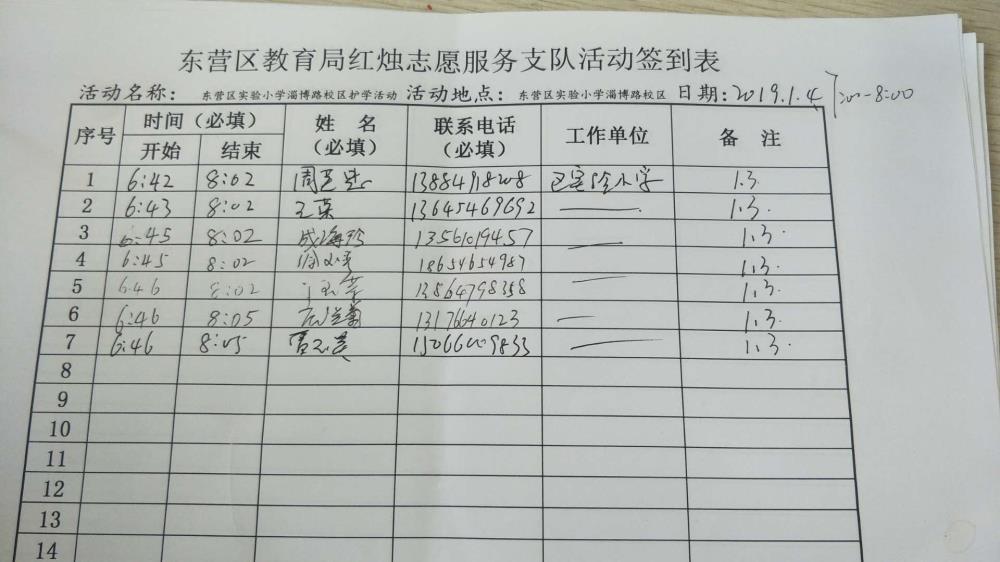 东营区教育局红烛志愿服务支队活动签到表
活动名称： 东营区实验小学淄博路校区护学活动 活动地点： 东营区实验小学淄博路校区 日期：2019.1.4 7:00-8:00
序号 时间（必填） 姓 名（必填） 联系电话（必填） 工作单位 备 注
开始 结束
1 6:42 8:02 13884918208 区实验小学 1.3.
2 6:43 8:02 王菜 13645469692 1.3.
3 6:45 8:02 成海玲 13561019457 1.3.
4 6:45 8:02 18654654987 1.3.
5 6:46 8:02 13864798358 1.3.
6 6:46 8:05 13176640123 1.3.
7 6:46 8:05 15066009833 1.3.
8
9
10
11
12
13
14